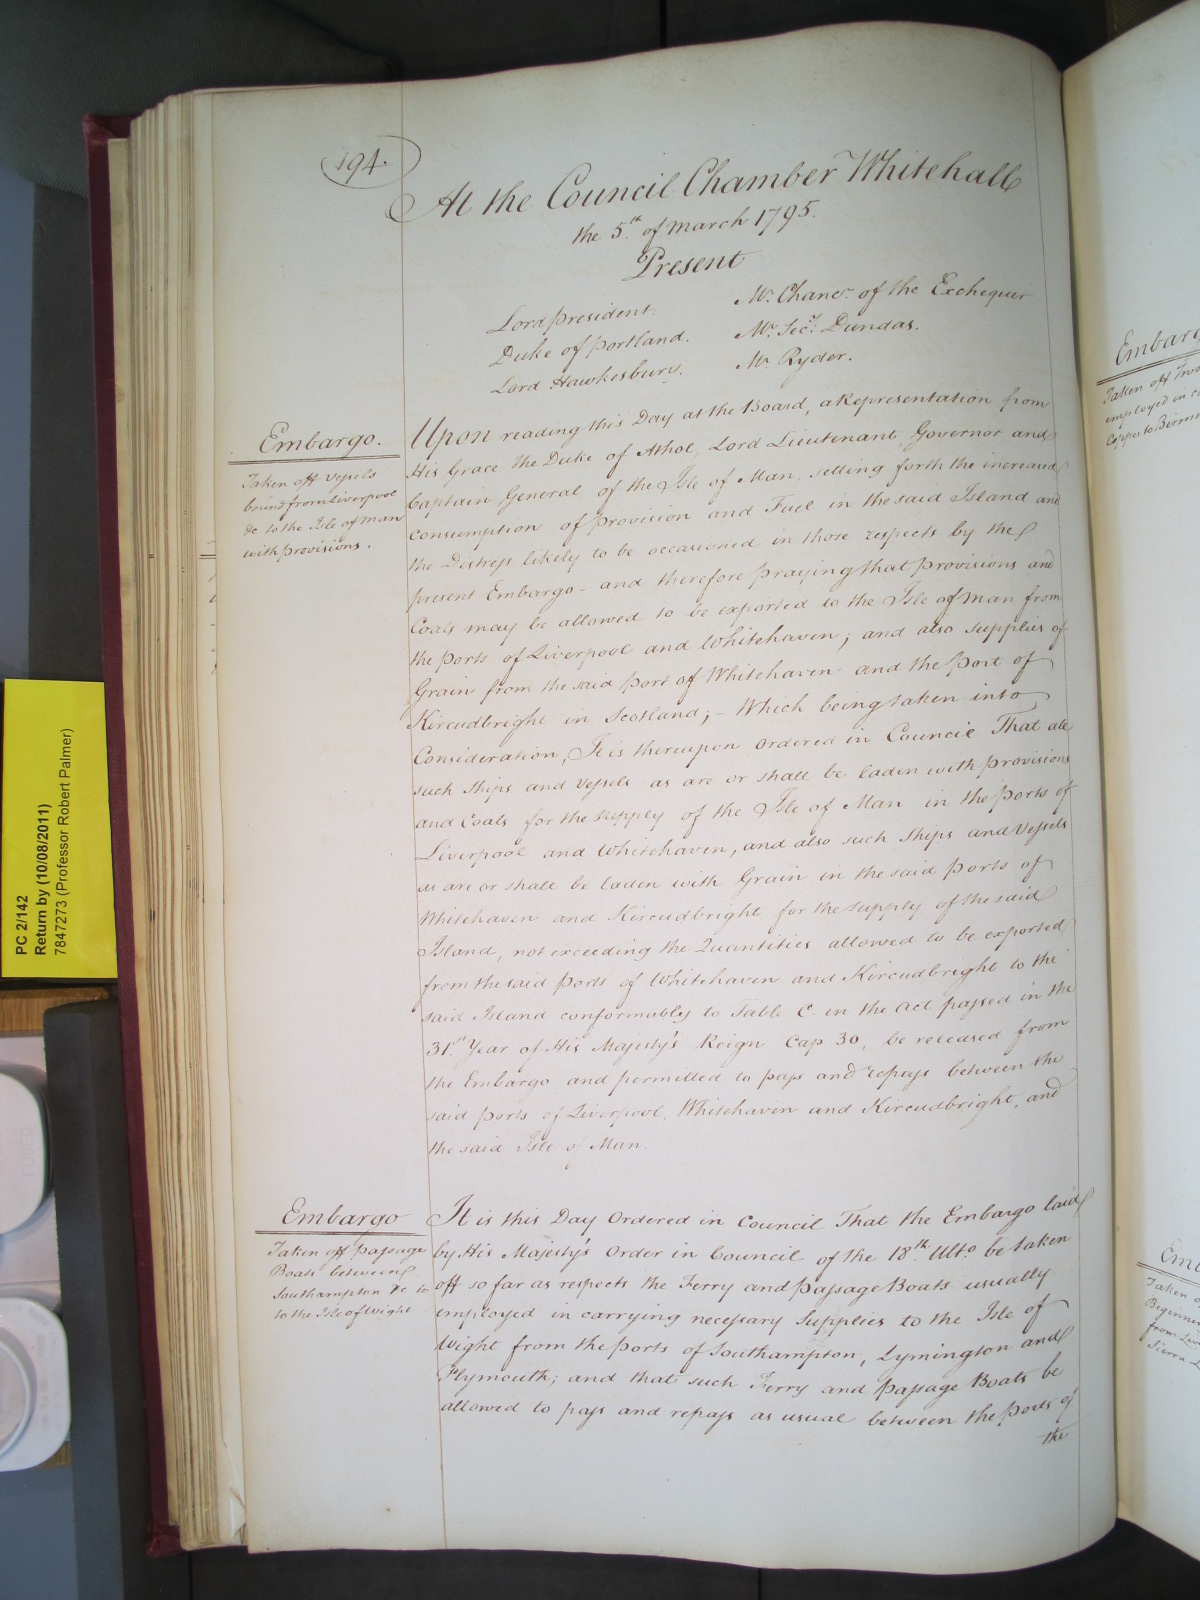 194.
At the Council Chamber Whitehall
the 5th. of March 1795.
Present
Lord President.
Duke of Portland.
Lord Hawkesbury.
Mr. Chancr. of the Exchequer
Mr. Secy. Dundas.
Mr. Ryder.
Embargo.
Taken off Vessels
bound from Liverpool
&c to the Isle of Man
with provisions.
Upon reading this Day at the Board, a Representation from
His Grace the Duke of Athol, Lord Lieutenant, Governor and
Captain General of the Isle of Man, setting forth the increased
consumption of provision and Fuel in the said Island and
the Distress likely to be occasioned in those respects by the
present Embargo - and therefore praying that provisions and
Coals may be allowed to be exported to the Isle of Man from
the ports of Liverpool and Whitehaven; and also supplies of
Grain from the said port of Whitehaven and the port of
Kircudbright in Scotland; - Which being taken into
Consideration, It is thereupon ordered in Council That all
such Ships and Vessels as are or shall be laden with provisions
and Coals for the supply of the Isle of Man in the ports of
Liverpool and Whitehaven, and also such Ships and Vessels
as are or shall be laden with Grain in the said ports of
Whitehaven and Kircudbright for the supply of the said
Island, not exceeding the Quantities allowed to be exported
from the said ports of Whitehaven and Kircudbright to the
said Island conformably to Table C. in the Act passed in the
31st. Year of His Majesty's Reign Cap 30, be released from
the Embargo and permitted to pass and repass between the
said ports of Liverpool, Whitehaven and Kircudbright, and
the said Isle of Man.
Embargo
Taken off passage
Boats between
Southampton &c to
to the Isle of Wight
It is this Day Ordered in Council That the Embargo laid
by His Majesty's Order in Council of the 18th. Ulto. be taken
off so far as respects the Ferry and passage Boats usually
employed in carrying necessary Supplies to the Isle of
Wight from the ports of Southampton, Lymington and
Plymouth; and that such Ferry and passage Boats be
allowed to pass and repass as usual between the ports of
the
PC 2/142
Return by (10/08/2011)
7847273 (Professor Robert Palmer)
Embarg
Taken off
employed in
Copper to
Emb
Taken o
from
Sierra L